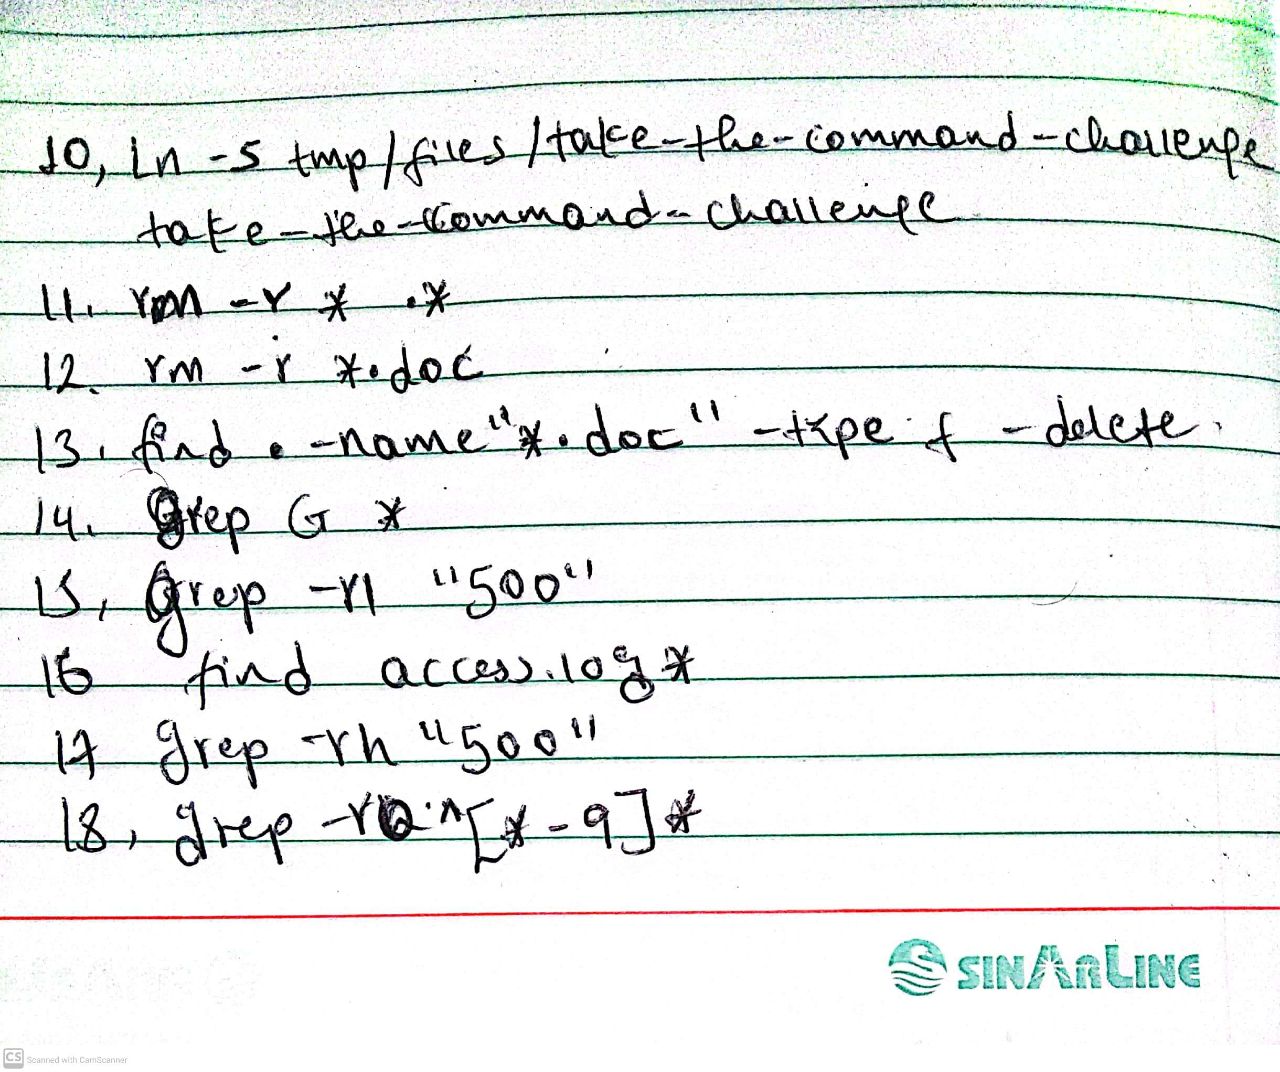 10, ln -s tmp/files/take-the-command-challenge
take-the-command-challenge
11. rm -r * .*
12. rm -r *.doc
13. find . -name "*.doc" -type f -delete.
14. Grep G *
15, Grep -rl "500"
16 find access.log*
17 grep -rh "500"
18, grep ^[*-9]*
SINARLINE
CS Scanned with CamScanner